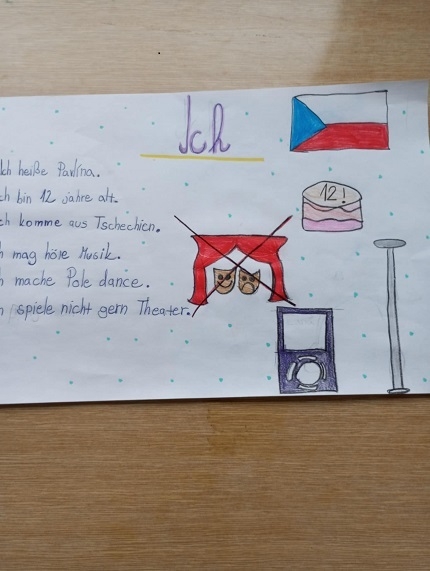 Ich
Ich heiße Pavlína.
ch bin 12 jahre alt.
ch komme aus Tschechien.
h mag höre Musik.
h mache Pole dance.
n spiele nicht gern Theater.
12!